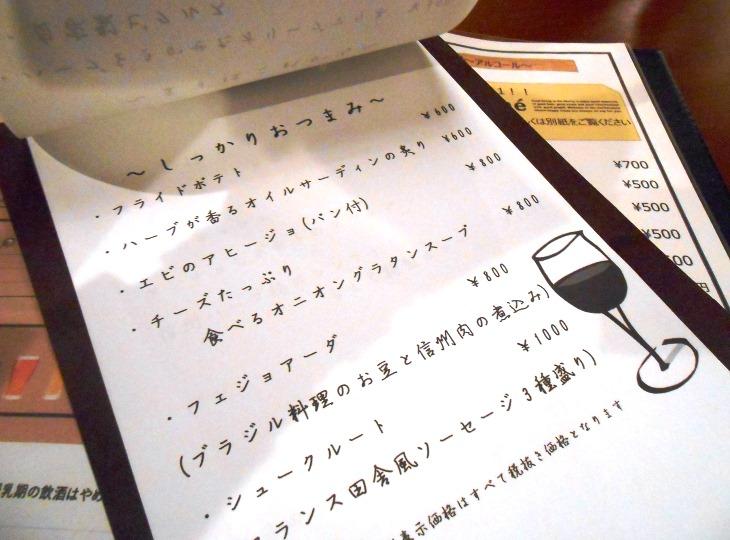 ~しっかりおつまみ~
・フライドポテト ¥600
・ハーブが香るオイルサーディンの炙り ¥600
・エビのアヒージョ(パン付) ¥800
・チーズたっぷり
食べるオニオングラタンスープ ¥800
・フェジョアーダ ¥800
(ブラジル料理のお豆と信州肉の煮込み)
・シュークルート ¥1000
フランス田舎風ソーセージ3種盛り)
表示価格はすべて税抜き価格となります
~アルコール~
くは別紙をご覧ください
¥700
¥500
¥500
¥500
¥500
円
乳期の飲酒はやめ